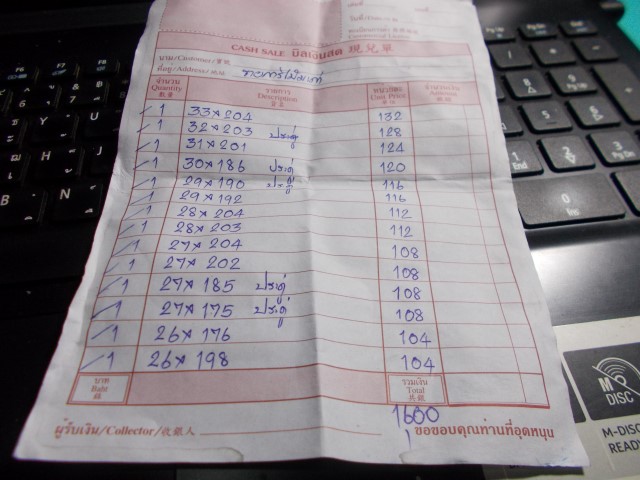 CASH SALE บิลเงินสด 現兌單
นาม/Customer/
ที่อยู่/Address/
จำนวน Quantity 數量 รายการ Description 貨名 หน่วยละ Unit Price จำนวนเงิน Amount
/ 1 33 x 204 132
/ 1 32 x 203 ประตู่ 128
/ 1 31 x 201 124
/ 1 30 x 186 ประตู่ 120
/ 1 29 x 190 ประตู่ 116
/ 1 29 x 192 116
/ 1 28 x 204 112
/ 1 28 x 203 112
/ 1 27 x 204 108
/ 1 27 x 202 108
/ 1 27 x 185 ประตู่ 108
/ 1 27 x 175 ประตู่ 108
/ 1 26 x 176 104
/ 1 26 x 198 104
บาท Baht 銖 รวมเงิน Total 共銀
1600
ผู้รับเงิน/Collector/收銀人 ขอขอบคุณท่านที่อุดหนุน
M
DISC
M-DISC
READY